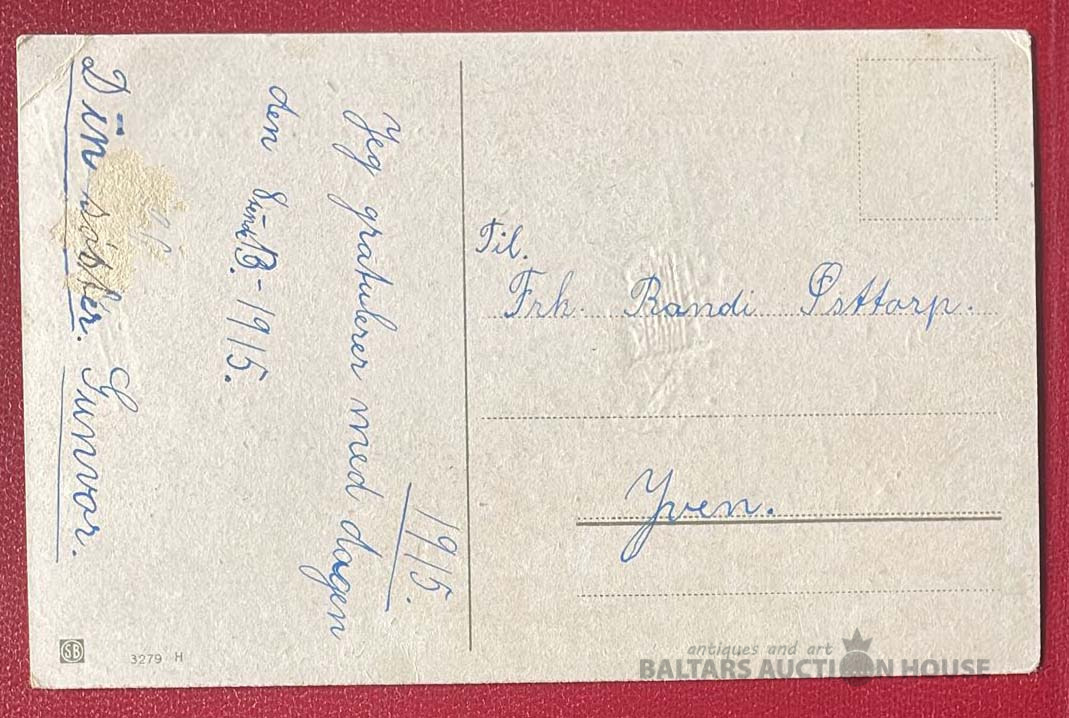 1915.
Jeg gratulerer med dagen
den 1915.
Din søster. Gunvor.
Til.
Frk. Randi Østtorp.
Yven.
SB
3279 H
antiques and art
BALTARS AUCTION HOUSE